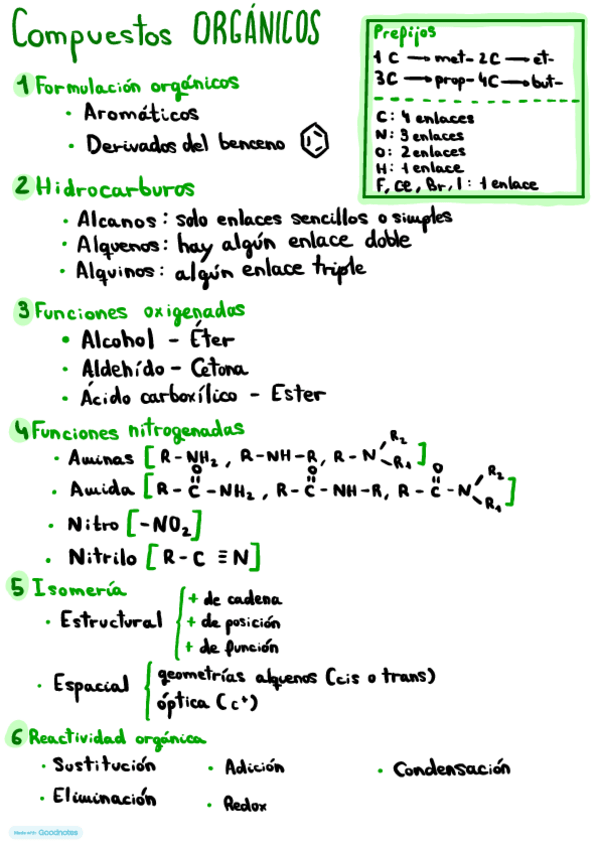 Compuestos ORGÁNICOS
Prefijos
1 C → met- 2C → et-
3C → prop- 4C → but-
C: 4 enlaces
N: 3 enlaces
O: 2 enlaces
H: 1 enlace
F, Cl, Br, I: 1 enlace
1 Formulación orgánicos
· Aromáticos
· Derivados del benceno
2 Hidrocarburos
· Alcanos: solo enlaces sencillos o simples
· Alquenos: hay algún enlace doble
· Alquinos: algún enlace triple
3 Funciones oxigenadas
· Alcohol - Éter
· Aldehído - Cetona
· Ácido carboxílico - Ester
4 Funciones nitrogenadas
· Aminas [R-NH₂, R-NH-R, R-N(-R₂)-R₁]
· Amida [R-C(=O)-NH₂, R-C(=O)-NH-R, R-C(=O)-N(-R₂)-R₁]
· Nitro [-NO₂]
· Nitrilo [R-C≡N]
5 Isomería
· Estructural
+ de cadena
+ de posición
+ de función
· Espacial
geometrías alquenos (cis o trans)
óptica (c⁺)
6 Reactividad orgánica
· Sustitución · Adición · Condensación
· Eliminación · Redox
Made with Goodnotes